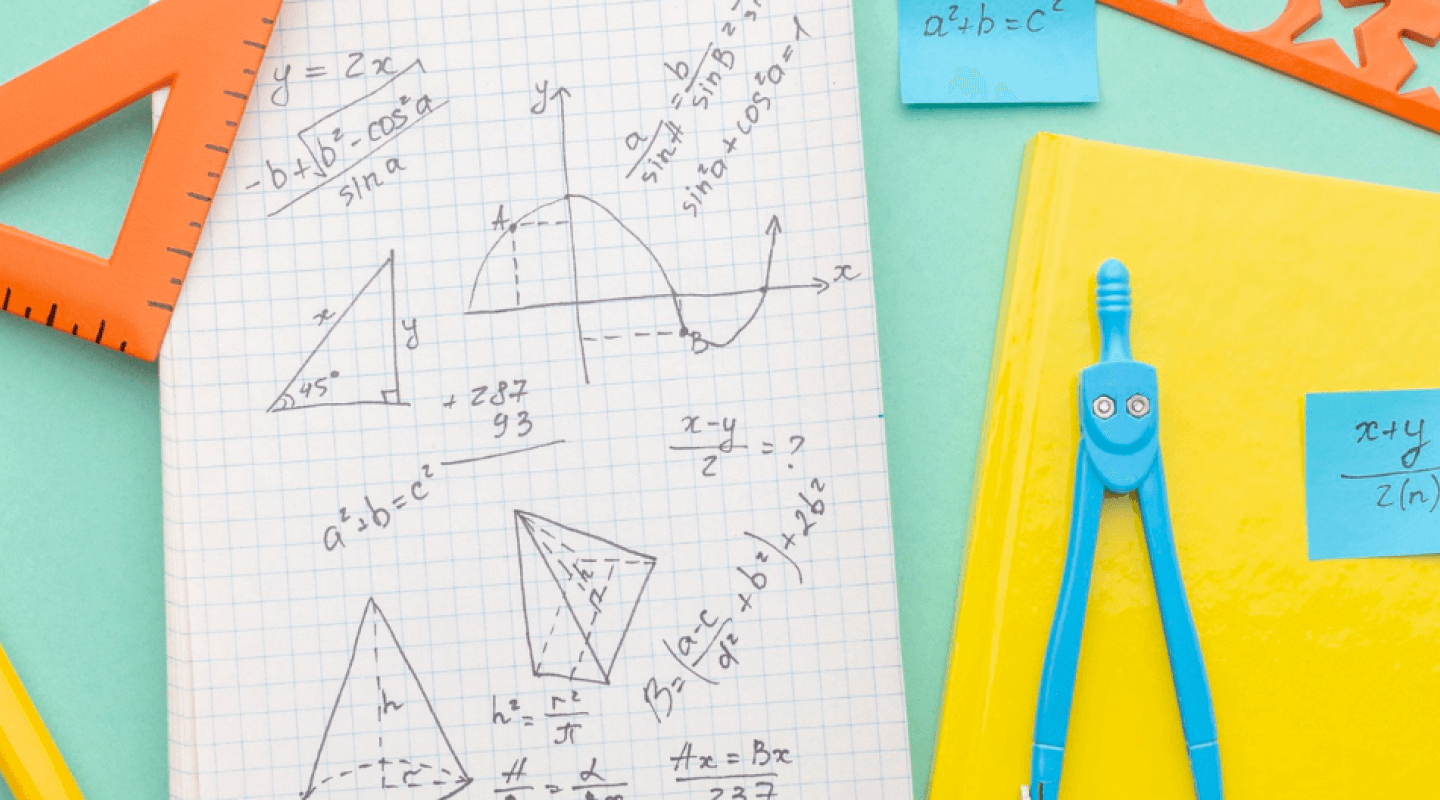 y = 2x
-b+√b²-cos²a
sin a
a
sin A
=
b
sin B
sin²a + cos²a = 1
y
A
x
B
x
y
45°
+ 287
93
x-y
2
= ?
a²+b=c²
h
r
B=(a-c
d²
+b²)+2b²
h
r
h²= r²
π
A
=
L
Ax = Bx
237
a²+b=c²
x+y
2(n)